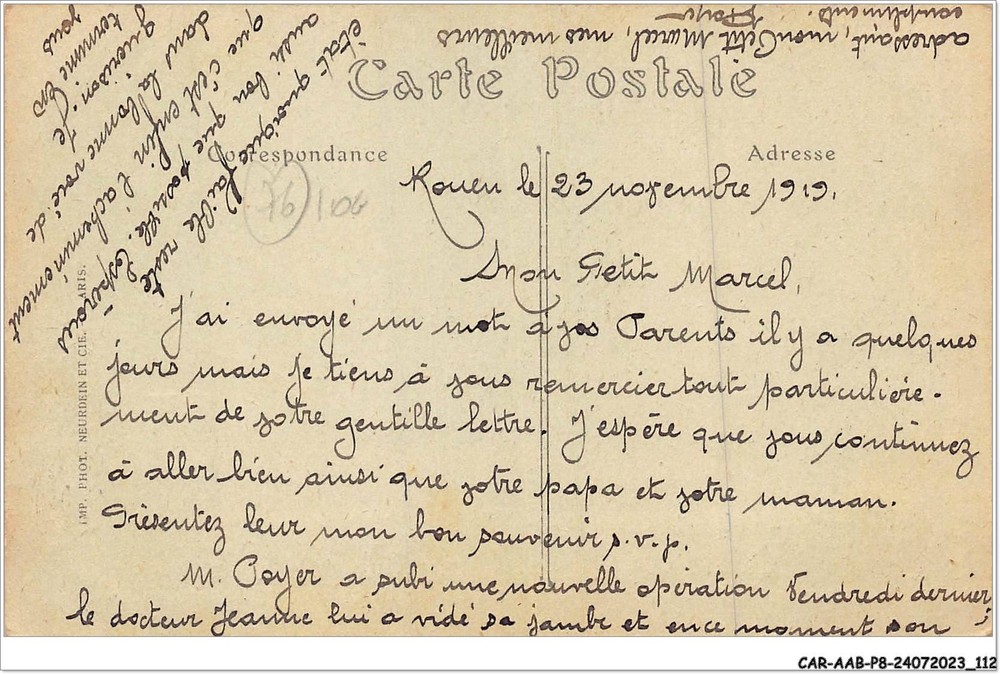 Carte Postale
Correspondance
Adresse
76 / 106
Rouen le 23 novembre 1919.
Mon Petit Marcel,
J'ai envoyé un mot à vos Parents il y a quelques
jours mais je tiens à vous remercier tout particulière-
ment de votre gentille lettre. J'espère que vous continuez
à aller bien ainsi que votre papa et votre maman.
Présentez leur mon bon souvenir s.v.p.
M. Poyer a subi une nouvelle opération Vendredi dernier,
le docteur Jeanne lui a vidé sa jambe et en ce moment son
état quoique faible reste
aussi bon que possible. Espérons
que c'est enfin l'acheminement
dans la bonne voie de
guérison. Je
termine en
vous
adressant, mon Petit Marcel, mes meilleurs
compliments.
IMP. PHOT. NEURDEIN ET CIE. PARIS.
CAR-AAB-P8-24072023_112